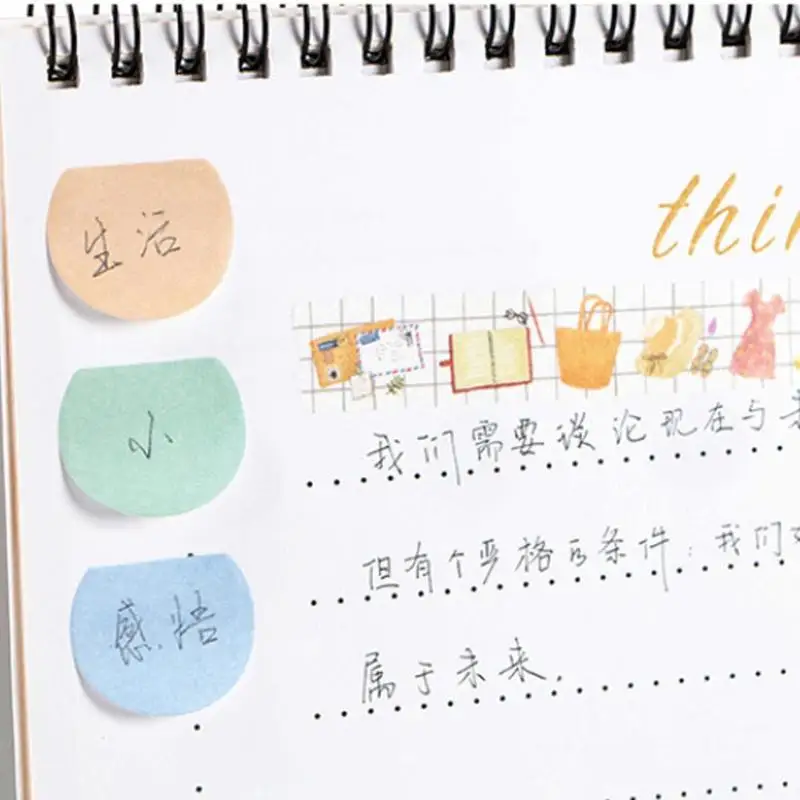 生活
小
感悟
thin
我们需要谈论现在与
但有个严格的条件：我们
属于未来.